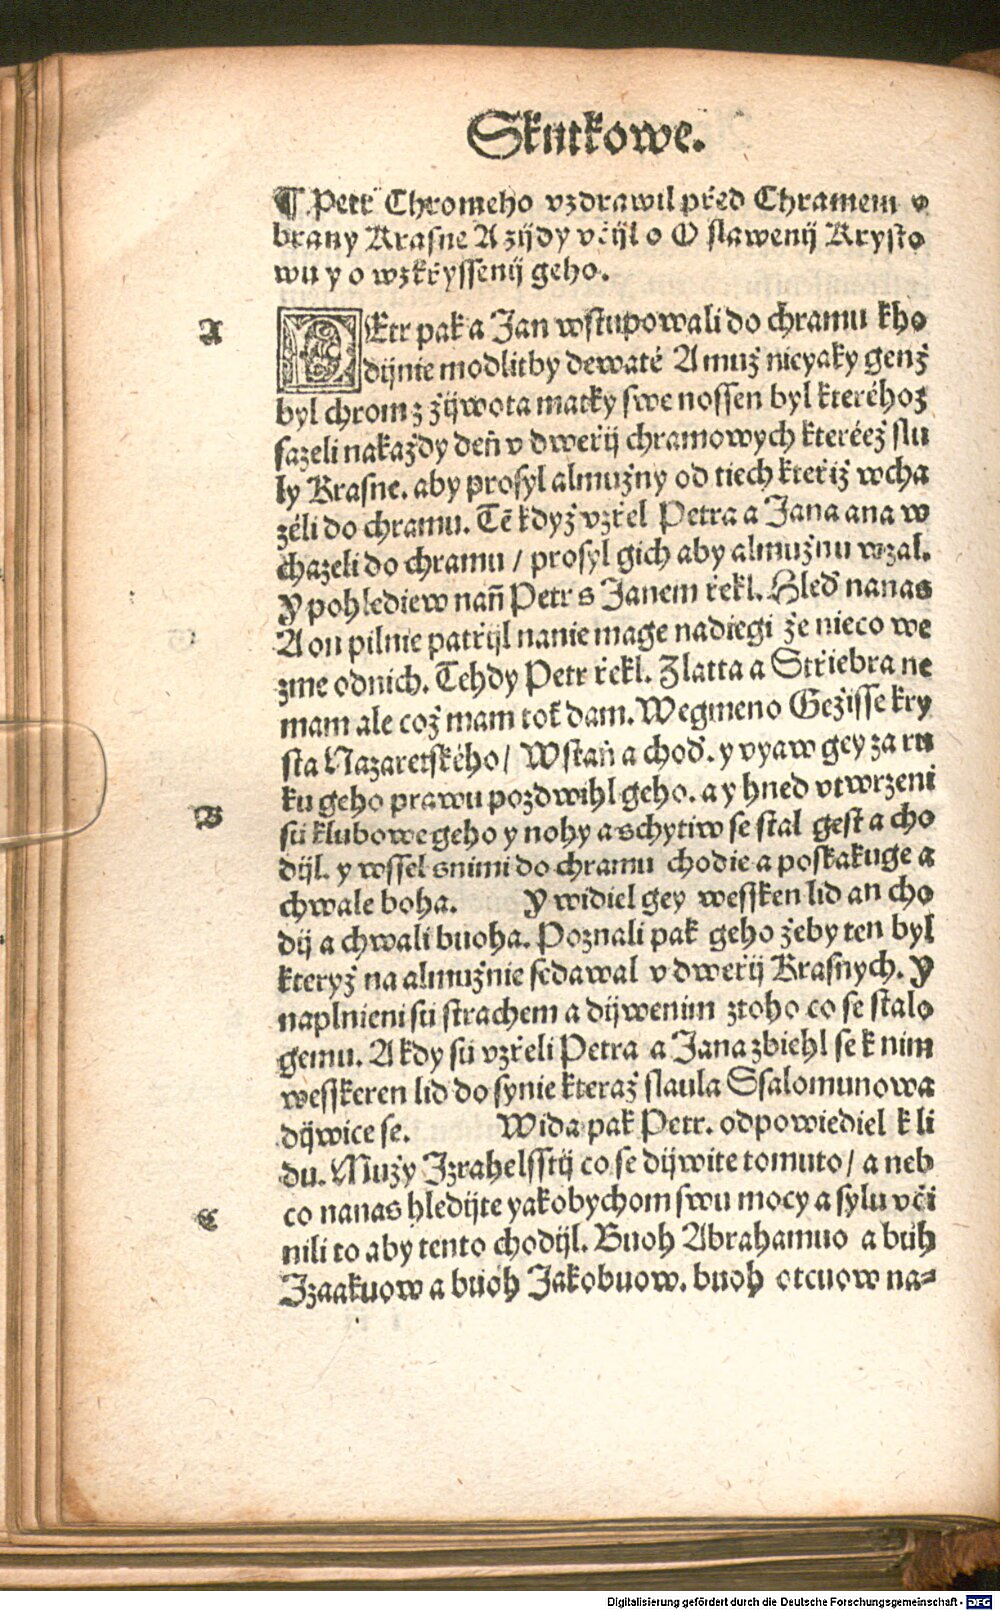 Skutkowe.
¶ Petr Chromeho vzdrawil před Chramem v
brany Krasne A zijdy včijl o O slawenij Krysto
wu y o wzkřyssenij geho.
A
PEtr pak a Jan wstupowali do chramu k ho
dijnie modlitby dewaté A muž nicyaky genž
byl chrom z žijwota matky swe nossen byl kteréhož
sazeli na každy deň v dweřij chramowych kteréež slu
ly Krasne. aby prosyl almužny od tiech kteřiž wcha
zéli do chramu. Tē když vzřel Petra a Jana ana w
chazeli do chramu / prosyl gich aby almužnu wzal.
Y pohlediew nañ Petr s Janem řekl. Hleď na nas
A on pilnie patřijl nanie mage nadiegi že nieco we
zme od nich. Tehdy Petr řekl. Zlatta a Střiebra ne
mam ale což mam tok dam. We gmeno Gežisse kry
sta Nazaretského / Wstaň a choď. y vyaw gey za ru
ku geho prawu pozdwihl geho. a y hned vtwrzeni
B
sú klubowe geho y nohy a schytiw se stal gest a cho
dijl. y wssel s nimi do chramu chodie a poskakuge a
chwale boha. Y widiel gey wessken lid an cho
dij a chwali buoha. Poznali pak geho žeby ten byl
kteryž na almužnie sedawal v dweřij Krasnych. Y
naplnieni sú strachem a dijwenim z toho co se stalo
gemu. A kdy sú vzřeli Petra a Jana zbiehl se k nim
wesskeren lid do synie kteraž slaula Ssalomunowa
dijwice se. Wida pak Petr. odpowiediel k li
du. Mužy Izrahelsstij co se dijwite tomuto / a neb
C
co na nas hledijte yakobychom swu mocy a sylu vči
nili to aby tento chodijl. Buoh Abrahamuo a búh
Izaakuow a buoh Jakobuow. buoh otcuow na=
Digitalisierung gefördert durch die Deutsche Forschungsgemeinschaft - DFG